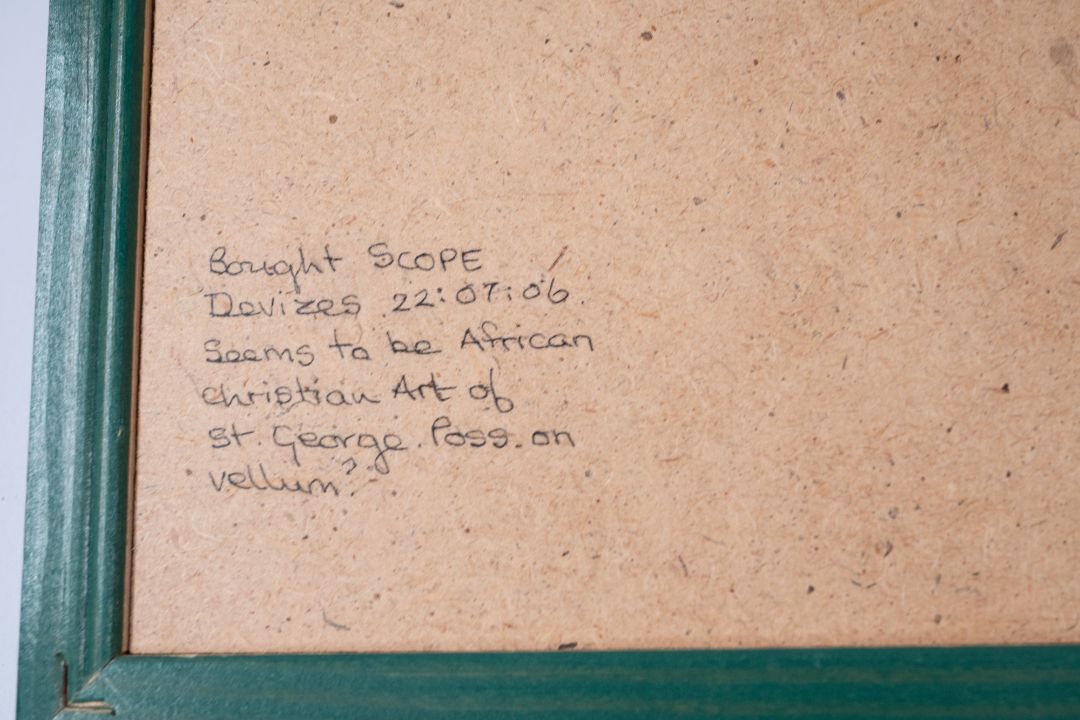 Bought SCOPE
Devizes 22:07:06.
Seems to be African
christian Art of
St. George. Poss. on
vellum?